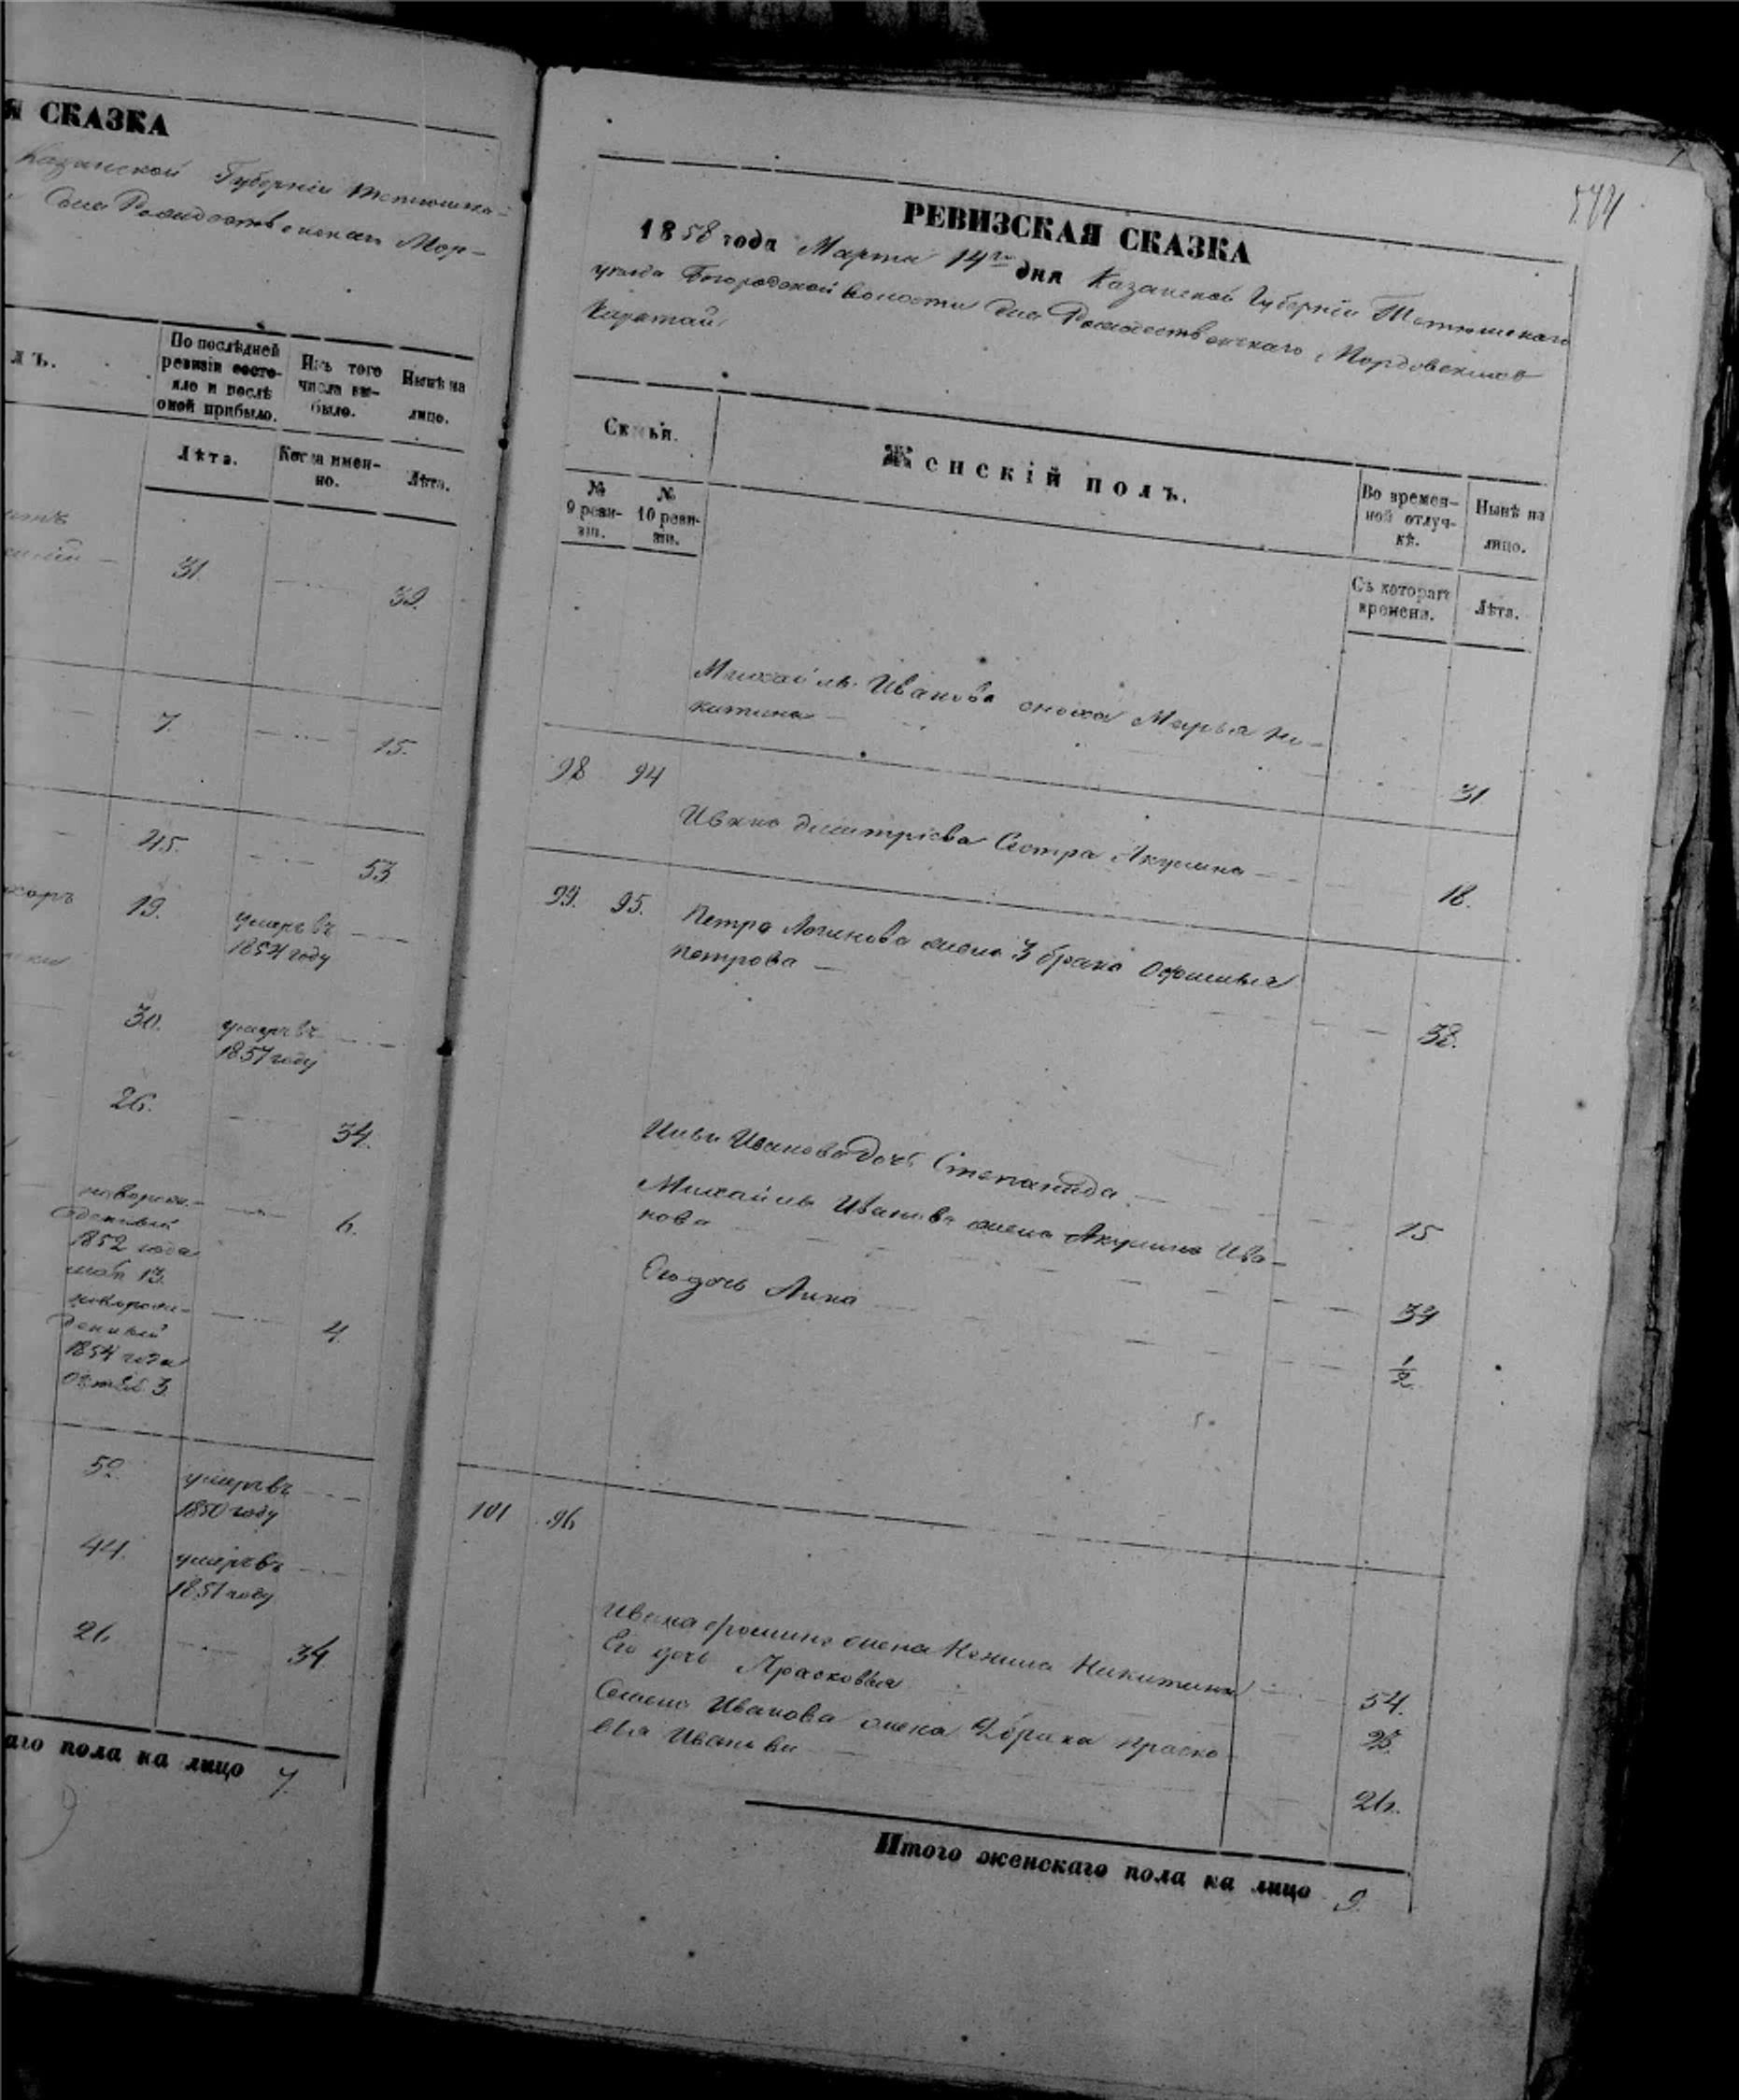 Я СКАЗКА
Казанской Губерніи Тетюшска-
села Рождественскаго Мор-
лъ.
По послѣдней
ревизіи состо-
яло и послѣ
оной прибыло.
Изъ того
числа вы-
было.
Нынѣ на
лицо.
Лѣта.
Когда имен-
но.
Лѣта.
31.
39.
7.
15.
45.
53.
19.
умеръ въ
1854 году
30.
умеръ въ
1857 году
26.
34.
новорож-
денный
1852 года
13.
6.
новорож-
денный
1854 года
3.
4.
52.
умеръ въ
1850 году
44.
умеръ въ
1851 году
26.
34.
аго пола на лицо 7.
544
РЕВИЗСКАЯ СКАЗКА
1858 года Марта 14го дня Казанской Губерніи Тетюшскаго
уѣзда Богородской волости села Рождественскаго, Мордовскихъ
Каратай
Семьи.
Женскій полъ.
Во времен-
ной отлуч-
кѣ.
Нынѣ на
лицо.
№
9 реви-
зіи.
№
10 реви-
зіи.
Съ котораго
времени.
Лѣта.
Михайлы Иванова сноха Марья Ни-
китина 31
98 94
Ивана Дмитріева Сестра Акулина 18.
99. 95. Петра Логинова жена 3 брака Офимья
Петрова 38.
Ильи Иванова дочь Степанида 15
Михайлы Иванова жена Акулина Ива-
нова 34
Его дочь Анна 1/2
101 96
Ивана жена Никитина 54.
Его дочь Прасковья 25.
Семена Иванова жена 2 брака Праско-
вья Иванова 26.
Итого женскаго пола на лицо 9.